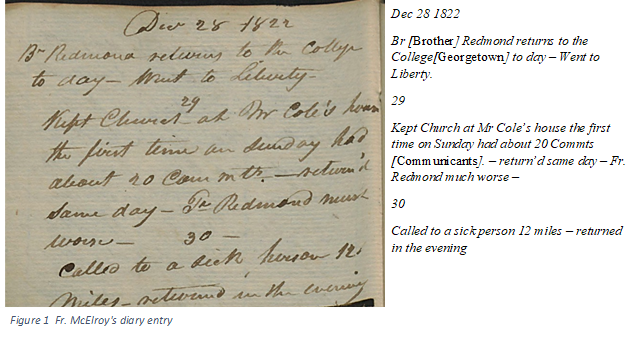 Dec 28 1822
Br Redmond returns to the College
to day – Went to Liberty –
29
Kept Church at Mr Cole's house
the first time on Sunday had
about 20 Commts. – return'd
same day – Fr Redmond much
worse – 30 –
Called to a sick person 12
miles – returned in the evening
Figure 1 Fr. McElroy's diary entry
Dec 28 1822
Br [Brother] Redmond returns to the
College[Georgetown] to day – Went to
Liberty.
29
Kept Church at Mr Cole's house the first
time on Sunday had about 20 Commts
[Communicants]. – return'd same day – Fr.
Redmond much worse –
30
Called to a sick person 12 miles – returned
in the evening